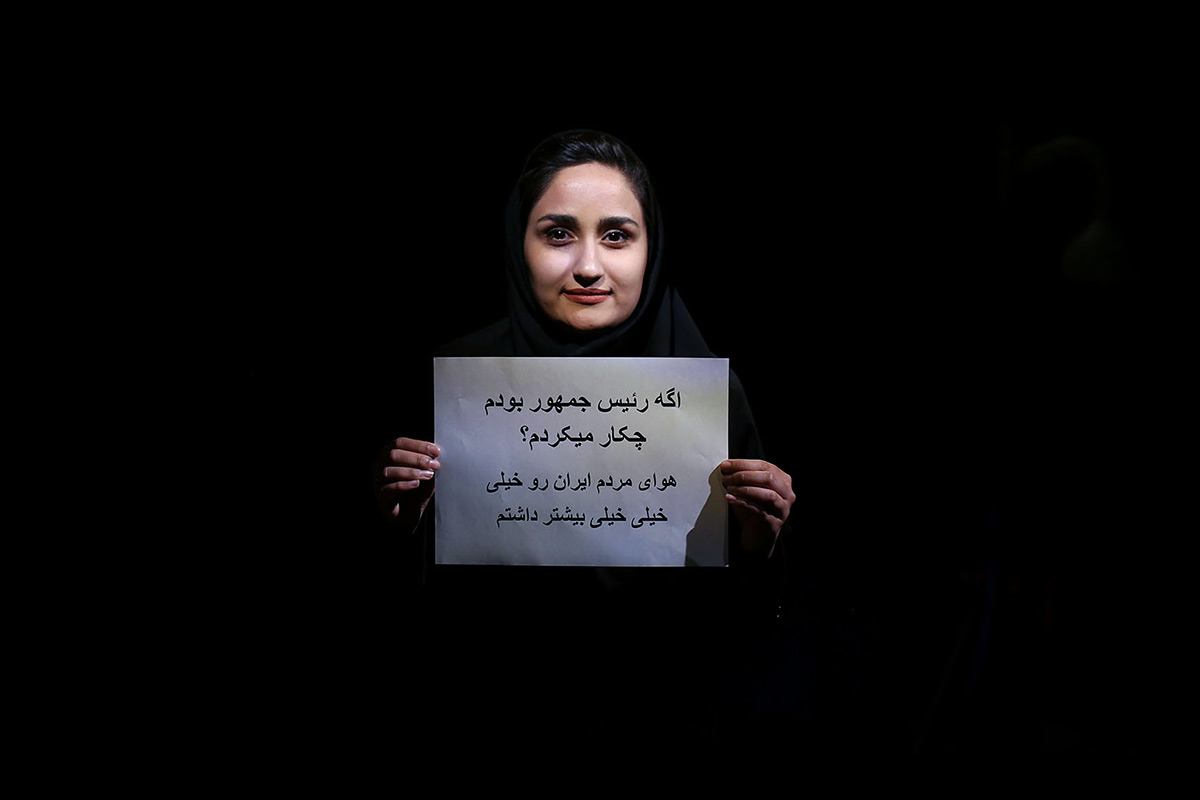 اگه رئیس جمهور بودم
چکار میکردم؟
هوای مردم ایران رو خیلی
خیلی خیلی بیشتر داشتم